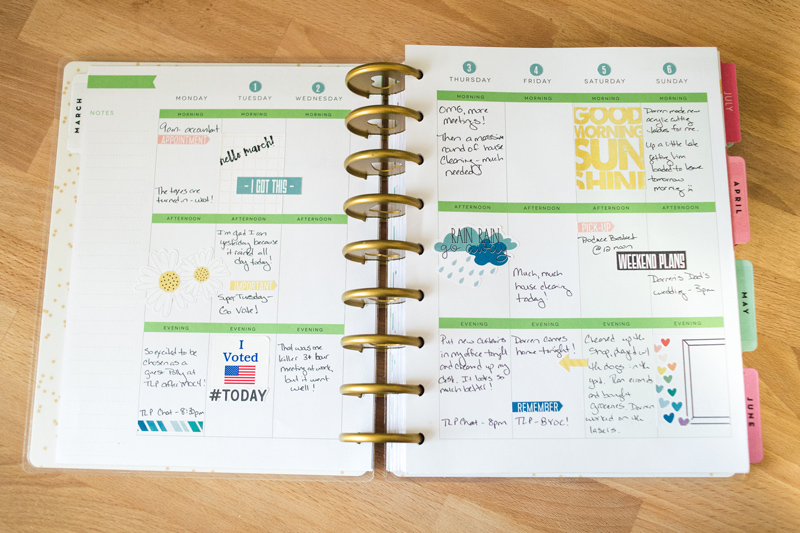 MARCH
NOTES
MONDAY
MORNING
9am accountant
APPOINTMENT
The taxes are
turned in - woot!
AFTERNOON
EVENING
So excited to be
chosen as a
guest Polly at
TLP after MDCH!
TLP Chat - 8:30pm
1
TUESDAY
MORNING
hello march!
- I GOT THIS -
AFTERNOON
I'm glad I ran
yesterday because
it rained all
day today!
IMPORTANT
Super Tuesday -
Go Vote!
EVENING
I
Voted
#TODAY
2
WEDNESDAY
MORNING
AFTERNOON
EVENING
That was one
killer 3+ hour
meeting at work,
but it went
well!
3
THURSDAY
MORNING
OMG, more
meetings!
Then a massive
round of house
cleaning - much
needed
AFTERNOON
RAIN RAIN
go away
EVENING
Put new curtains
in my office tonight
and cleaned up my
desk. It looks so
much better!
TLP Chat - 8pm
4
FRIDAY
MORNING
AFTERNOON
Much, much
house cleaning
today!
EVENING
Darren comes
home tonight!
REMEMBER
TLP - BYOC!
5
SATURDAY
MORNING
GOOD
MORNING
SUN
SHINE
AFTERNOON
PICK-UP
Produce Basket
@ 12 noon
WEEKEND PLANS
EVENING
Cleaned up the
shop, played w/
the dogs in the
yard. Ran errands
and bought
groceries. Darren
worked on the
lasers.
6
SUNDAY
MORNING
Darren made new
acrylic cutting
for me.
Up a little late
getting him
loaded to leave
tomorrow
morning
AFTERNOON
Darren's Dad's
wedding - 3pm
EVENING
JULY
APRIL
MAY
JUNE